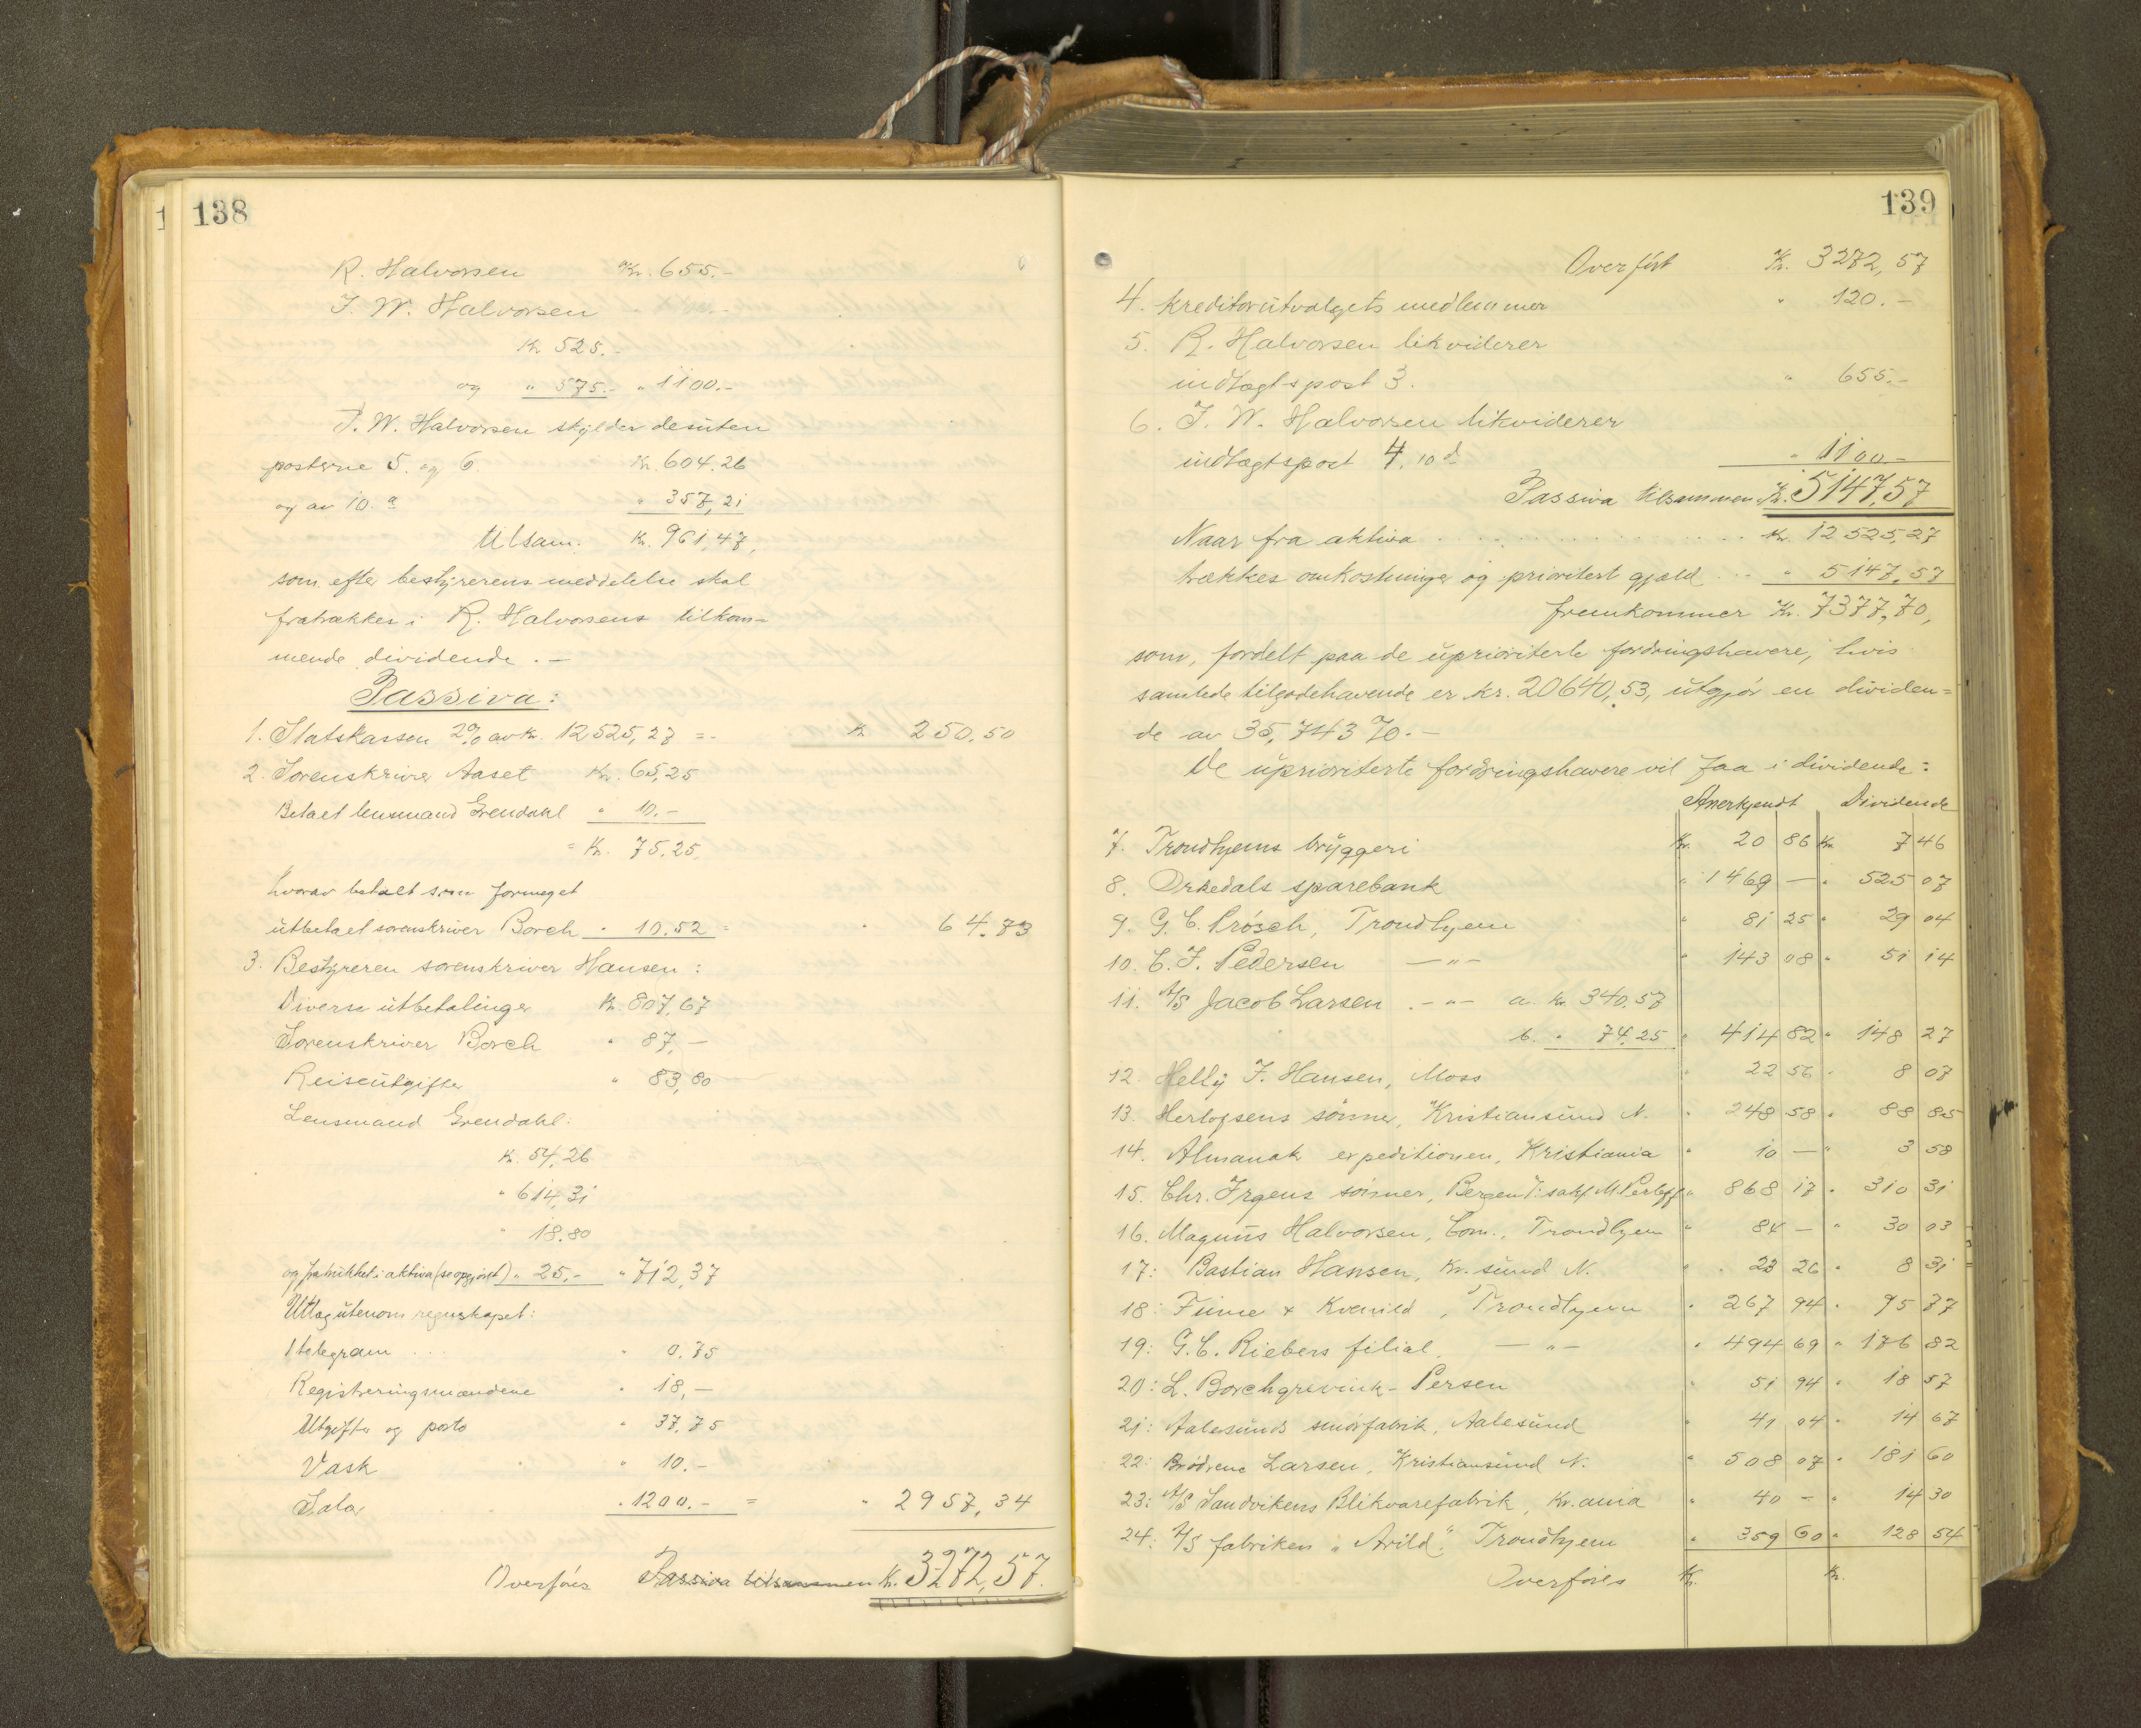 138
R. Halvorsen Kr. 655.-
J. W. Halvorsen
Kr 525.-
og " 575.- " 1100.-
J. W. Halvorsen skylder desuten
posterne 5. og 6. Kr. 604.26
og av 10. a " 357,21
tilsam. Kr. 961,47,
som efter bestyrerens meddelelse skal
fratrækkes i R. Halvorsens tilkom-
mende dividende. -
Passiva:
1. Statskassen 2% av kr. 12525,27 = - Kr 250.50
2. Sorenskriver Aaset Kr. 65,25
Betalt lensmand Grendahl " 10.-
= Kr. 75,25
hvorav betalt som formeget
utbetalt sorenskriver Borch " 10.52 = " 64.73
3. Bestyreren sorenskriver Hansen:
Diverse utbetalinger Kr. 807,67
Sorenskriver Borch " 87,-
Reiseutgifter " 83,80
Lensmand Grendahl:
Kr. 54,26
" 614,31
" 18.80
og fratrukket i aktiva (se opgjøret) " 25,- " 712,37
Utlæg utenom regnskapet:
1 telegram . . . " 0.75
Registreringsmændene " 18,-
Utgifter og porto " 37,75
Vask " 10.-
Salar " 1200.- = " 2957,34
Overføres Passiva tilsammen Kr. 3272,57.
139
Overført Kr. 3272,57
4. Kreditorutvalgets medlemmer " 120.-
5. R. Halvorsen likviderer
indtægtspost 3. " 655.-
6. J. W. Halvorsen likviderer
indtægtspost 4, 10 d " 1100.-
Passiva tilsammen Kr. 5147,57
Naar fra aktiva . . . . . . Kr. 12525,27
trækkes omkostninger og prioritert gjæld . . . " 5147,57
fremkommer Kr. 7377,70,
som, fordelt paa de uprioriterte fordringshavere, hvis
samlede tilgodehavende er kr. 20640,53, utgjør en dividen=
de av 35,743 %. -
De uprioriterte fordringshavere vil faa i dividende:
Anerkjendt Dividende
7. Trondhjems bryggeri Kr. 20 86 Kr. 7 46
8. Orkedals sparebank " 1469 - " 525 07
9. G. C. Prösch, Trondhjem " 81 25 " 29 04
10. C. J. Pedersen -"- " 143 08 " 51 14
11. A/S Jacob Larsen. -"- a. Kr. 340.57
b. " 74,25 " 414 82 " 148 27
12. Helly J. Hansen, Moss " 22 56 " 8 07
13. Herlofsens sønner, Kristiansund N. " 248 58 " 88 85
14. Almanak expeditionen, Kristiania " 10 - " 3 58
15. Chr. Irgens sønner, Bergen v: sakf. M. Perloff " 868 17 " 310 31
16. Magnus Halvorsen, Com., Trondhjem " 84 - " 30 03
17: Bastian Hansen, Kr. sund N. " 23 26 " 8 31
18: Finne & Kvenild, Trondhjem " 267 94 " 95 77
19: G. C. Riebers filial, -"- " 494 69 " 176 82
20: L. Borchgrevink-Persen " 51 94 " 18 57
21: Aalesunds smørfabrik, Aalesund " 41 04 " 14 67
22: Brödrene Larsen, Kristiansund N. " 508 07 " 181 60
23: A/S Sandvikens Blikvarefabrik, Kr.ania " 40 - " 14 30
24: A/S fabriken "Arild", Trondhjem " 359 60 " 128 54
Overføres Kr. Kr.